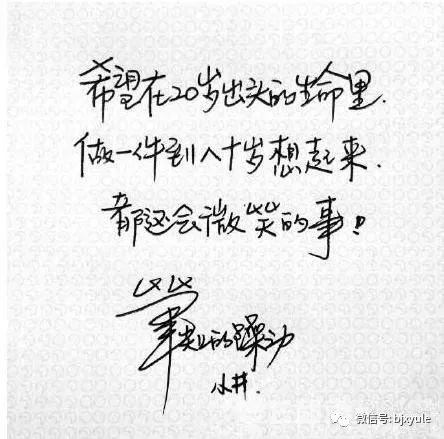 希望在20岁出头的生命里.
做一件到八十岁想起来.
都还会微笑的事!!
的躁动
小井.
微信号: bjxyule